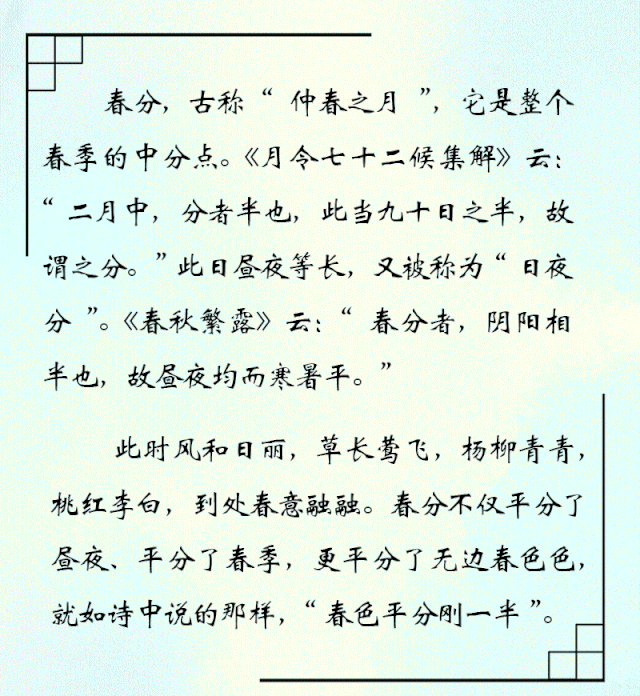 春分，古称“ 仲春之月 ”，它是整个
春季的中分点。《月令七十二候集解》云：
“ 二月中，分者半也，此当九十日之半，故
谓之分。”此日昼夜等长，又被称为“ 日夜
分 ”。《春秋繁露》云：“ 春分者，阴阳相
半也，故昼夜均而寒暑平。”
此时风和日丽，草长莺飞，杨柳青青，
桃红李白，到处春意融融。春分不仅平分了
昼夜、平分了春季，更平分了无边春色色，
就如诗中说的那样，“ 春色平分刚一半 ”。